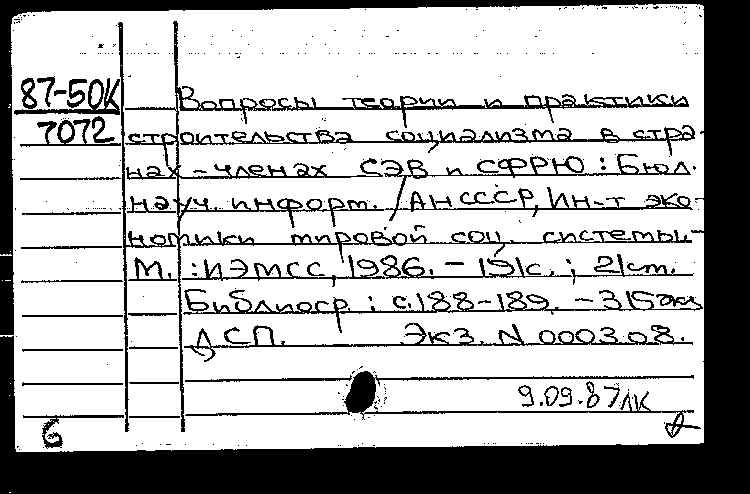 87-50К
7072
Вопросы теории и практики
строительства социализма в стра-
нах-членах СЭВ и СФРЮ : Бюл.
науч. информ. / АН СССР, Ин-т эко-
номики мировой соц. системы.-
М. : ИЭМСС, 1986. - 191с. ; 21см.
Библиогр : с.188-189. - 315экз
ДСП. Экз. N 000308.
9.09.87лк
6